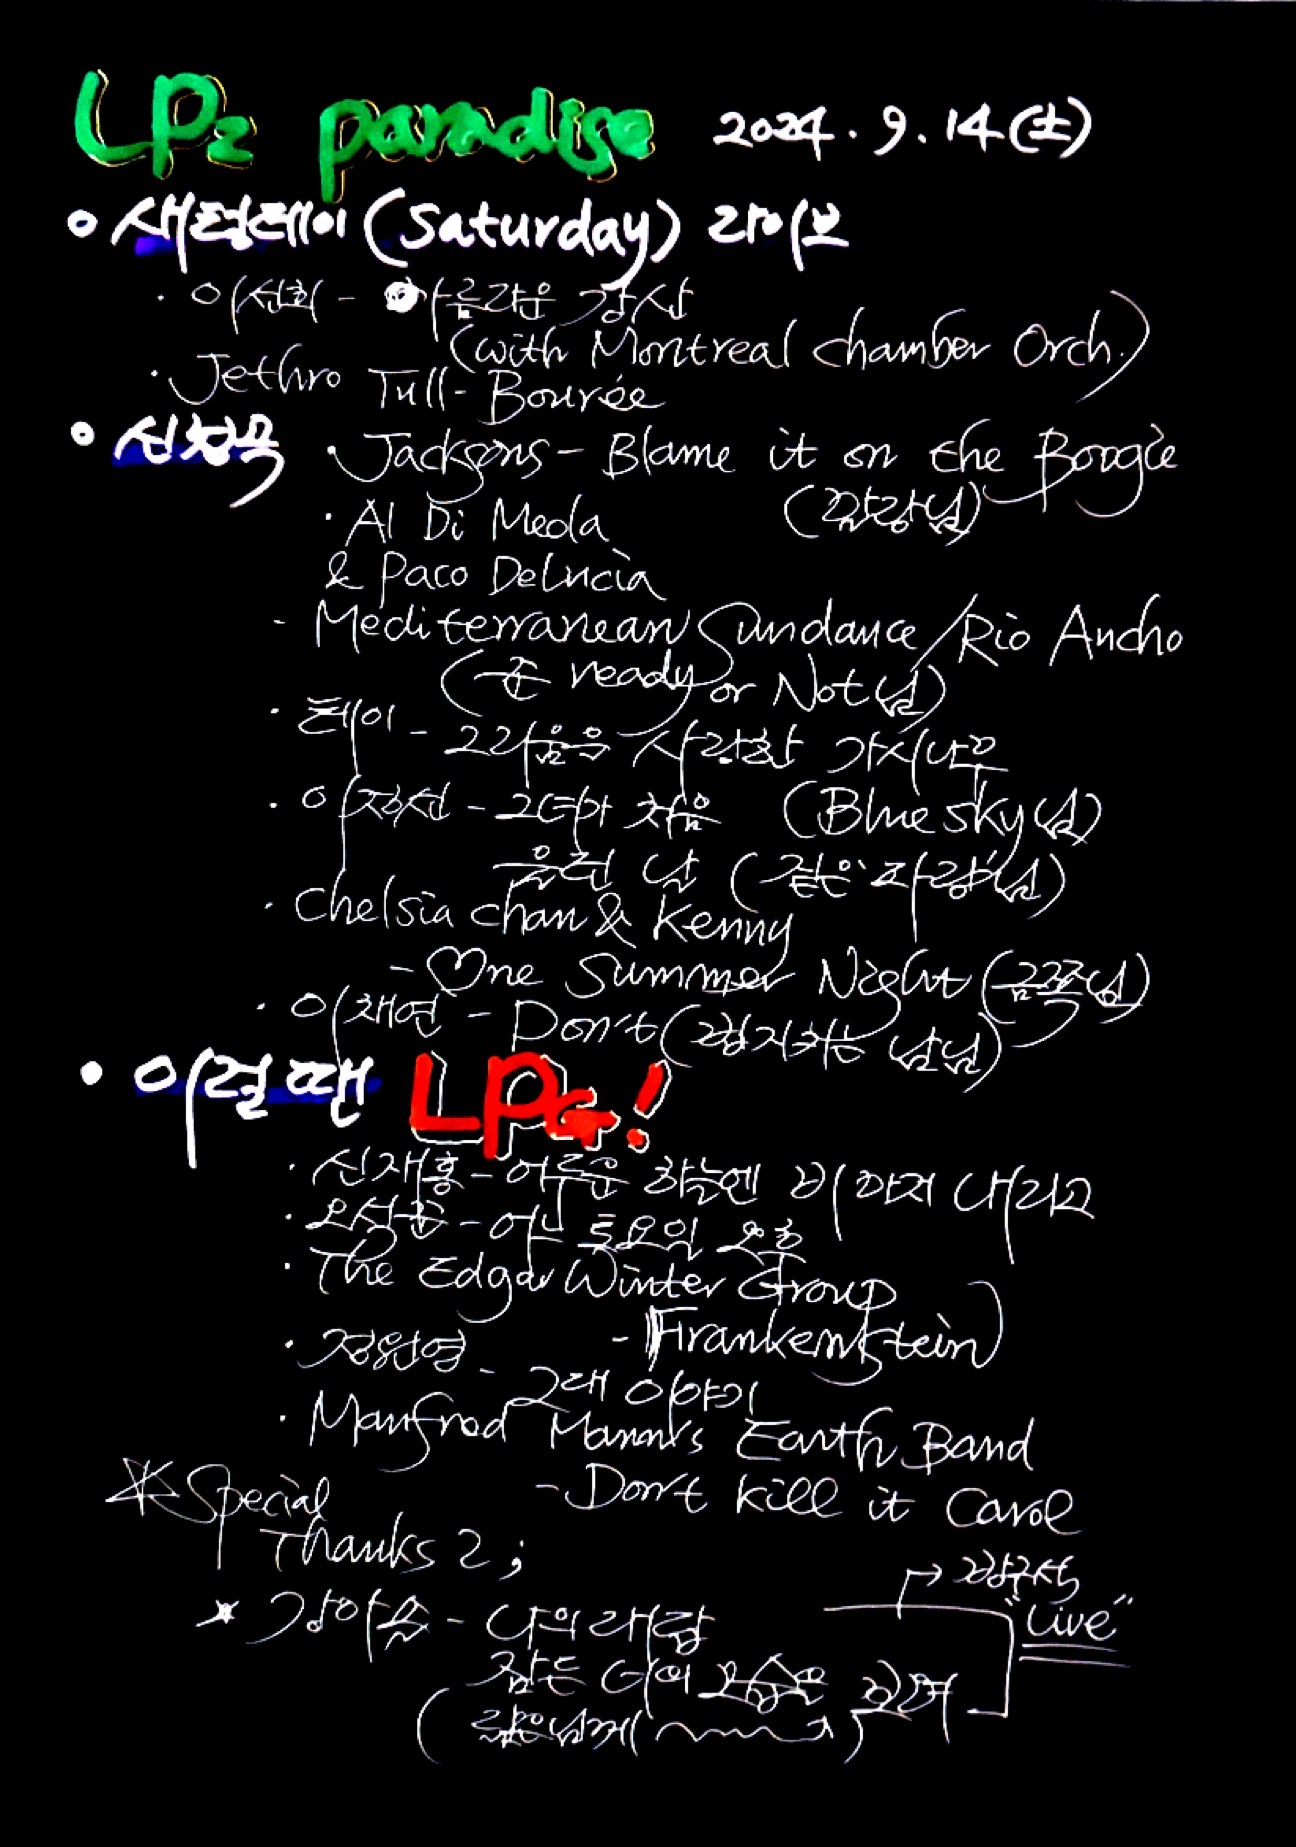 LPz paradise 2024. 9. 14 (土)
○ 새털데이 (Saturday) 라이브
· 이선희 - 아름다운 강산
(with Montreal Chamber Orch.)
· Jethro Tull - Bourée
○ 신청곡 · Jacksons - Blame it on the Boogie
· Al Di Meola
& Paco DeLucia
- Mediterranean Sundance / Rio Ancho
(준 ready or Not 님)
· 테이 - 그리움을 사랑한 가시나무
(Blue sky 님)
· 이정선 - 그녀가 처음
울던 날 (젊은 자랑님)
· Chelsia Chan & Kenny
- One Summer Night
· 이채연 - Don't
• 이럴 땐 LPG!
· 신재홍 - 어두운 하늘엔 비마저 내리고
· 오석준 - 어느 토요일 오후
· The Edgar Winter Group
- Frankenstein
· 정원영 - 그대 이야기
· Manfred Mann's Earth Band
- Don't kill it Carol
Special
Thanks 2 ;
★ 강아솔 - 나의 대답
"Live"